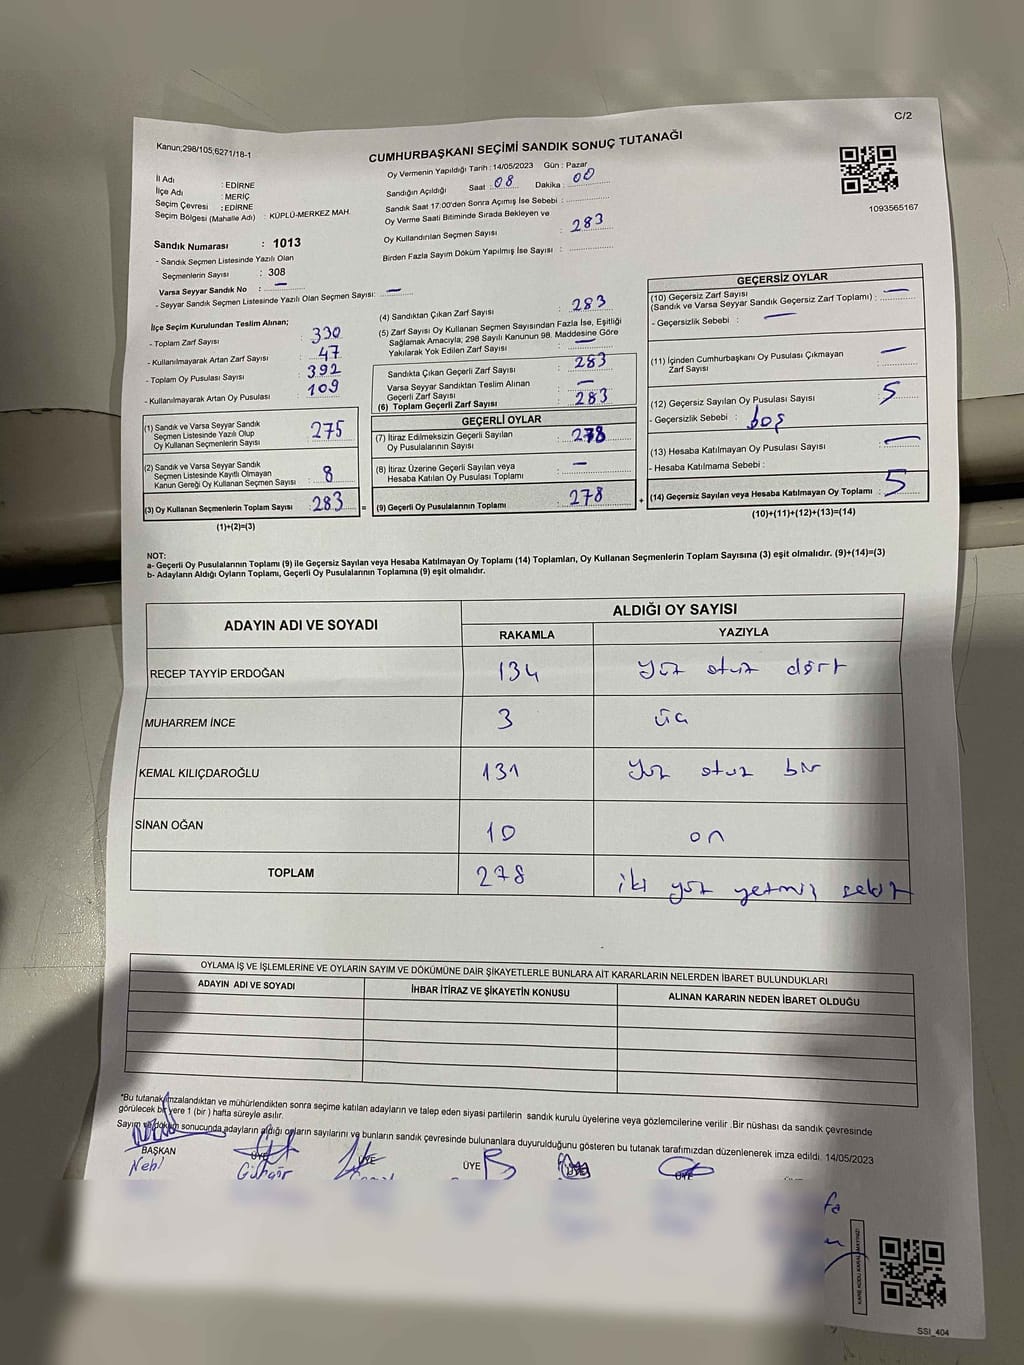 C/2
Kanun;298/105;6271/18-1
CUMHURBAŞKANI SEÇİMİ SANDIK SONUÇ TUTANAĞI
İl Adı : EDİRNE
İlçe Adı : MERİÇ
Seçim Çevresi : EDİRNE
Seçim Bölgesi (Mahalle Adı) : KÜPLÜ-MERKEZ MAH.
Sandık Numarası : 1013
- Sandık Seçmen Listesinde Yazılı Olan
Seçmenlerin Sayısı : 308
Varsa Seyyar Sandık No : —
- Seyyar Sandık Seçmen Listesinde Yazılı Olan Seçmen Sayısı: —
Oy Vermenin Yapıldığı Tarih : 14/05/2023 Gün : Pazar
Sandığın Açıldığı Saat : 08 Dakika : 00
Sandık Saat 17:00'den Sonra Açımış İse Sebebi :
Oy Verme Saati Bitiminde Sırada Bekleyen ve
Oy Kullandırılan Seçmen Sayısı : 283
Birden Fazla Sayım Döküm Yapılmış İse Sayısı :
1093565167
İlçe Seçim Kurulundan Teslim Alınan;
- Toplam Zarf Sayısı : 330
- Kullanılmayarak Artan Zarf Sayısı : 47
- Toplam Oy Pusulası Sayısı : 392
- Kullanılmayarak Artan Oy Pusulası : 109
(1) Sandık ve Varsa Seyyar Sandık
Seçmen Listesinde Yazılı Olup
Oy Kullanan Seçmenlerin Sayısı : 275
(2) Sandık ve Varsa Seyyar Sandık
Seçmen Listesinde Kayıtlı Olmayan
Kanun Gereği Oy Kullanan Seçmen Sayısı : 8
(3) Oy Kullanan Seçmenlerin Toplam Sayısı : 283 =
(1)+(2)=(3)
(4) Sandıktan Çıkan Zarf Sayısı : 283
(5) Zarf Sayısı Oy Kullanan Seçmen Sayısından Fazla İse, Eşitliği
Sağlamak Amacıyla; 298 Sayılı Kanunun 98. Maddesine Göre
Yakılarak Yok Edilen Zarf Sayısı : —
Sandıkta Çıkan Geçerli Zarf Sayısı : 283
Varsa Seyyar Sandıktan Teslim Alınan
Geçerli Zarf Sayısı : —
(6) Toplam Geçerli Zarf Sayısı : 283
GEÇERLİ OYLAR
(7) İtiraz Edilmeksizin Geçerli Sayılan
Oy Pusulasının Sayısı : 278
(8) İtiraz Üzerine Geçerli Sayılan veya
Hesaba Katılan Oy Pusulası Toplamı : —
(9) Geçerli Oy Pusulalarının Toplamı : 278 +
GEÇERSİZ OYLAR
(10) Geçersiz Zarf Sayısı
(Sandık ve Varsa Seyyar Sandık Geçersiz Zarf Toplamı) : —
- Geçersizlik Sebebi : —
(11) İçinden Cumhurbaşkanı Oy Pusulası Çıkmayan
Zarf Sayısı : —
(12) Geçersiz Sayılan Oy Pusulası Sayısı : 5
- Geçersizlik Sebebi : boş
(13) Hesaba Katılmayan Oy Pusulası Sayısı : —
- Hesaba Katılmama Sebebi :
(14) Geçersiz Sayılan veya Hesaba Katılmayan Oy Toplamı : 5
(10)+(11)+(12)+(13)=(14)
NOT:
a- Geçerli Oy Pusulalarının Toplamı (9) ile Geçersiz Sayılan veya Hesaba Katılmayan Oy Toplamı (14) Toplamları, Oy Kullanan Seçmenlerin Toplam Sayısına (3) eşit olmalıdır. (9)+(14)=(3)
b- Adayların Aldığı Oyların Toplamı, Geçerli Oy Pusulalarının Toplamına (9) eşit olmalıdır.
ADAYIN ADI VE SOYADI ALDIĞI OY SAYISI
RAKAMLA YAZIYLA
RECEP TAYYİP ERDOĞAN 134 yüz otuz dört
MUHARREM İNCE 3 üç
KEMAL KILIÇDAROĞLU 131 yüz otuz bir
SİNAN OĞAN 10 on
TOPLAM 278 iki yüz yetmiş sekiz
OYLAMA İŞ VE İŞLEMLERİNE VE OYLARIN SAYIM VE DÖKÜMÜNE DAİR ŞİKAYETLERLE BUNLARA AİT KARARLARIN NELERDEN İBARET BULUNDUKLARI
ADAYIN ADI VE SOYADI İHBAR İTİRAZ VE ŞİKAYETİN KONUSU ALINAN KARARIN NEDEN İBARET OLDUĞU
"Bu tutanak imzalandıktan ve mühürlendikten sonra seçime katılan adayların ve talep eden siyasi partilerin sandık kurulu üyelerine veya gözlemcilerine verilir .Bir nüshası da sandık çevresinde
görülecek bir yere 1 (bir ) hafta süreyle asılır.
Sayım ve döküm sonucunda adayların aldığı oyların sayılarını ve bunların sandık çevresinde bulunanlara duyurulduğunu gösteren bu tutanak tarafımızdan düzenlenerek imza edildi. 14/05/2023
BAŞKAN ÜYE ÜYE ÜYE ÜYE ÜYE
Güngör
SSI_404